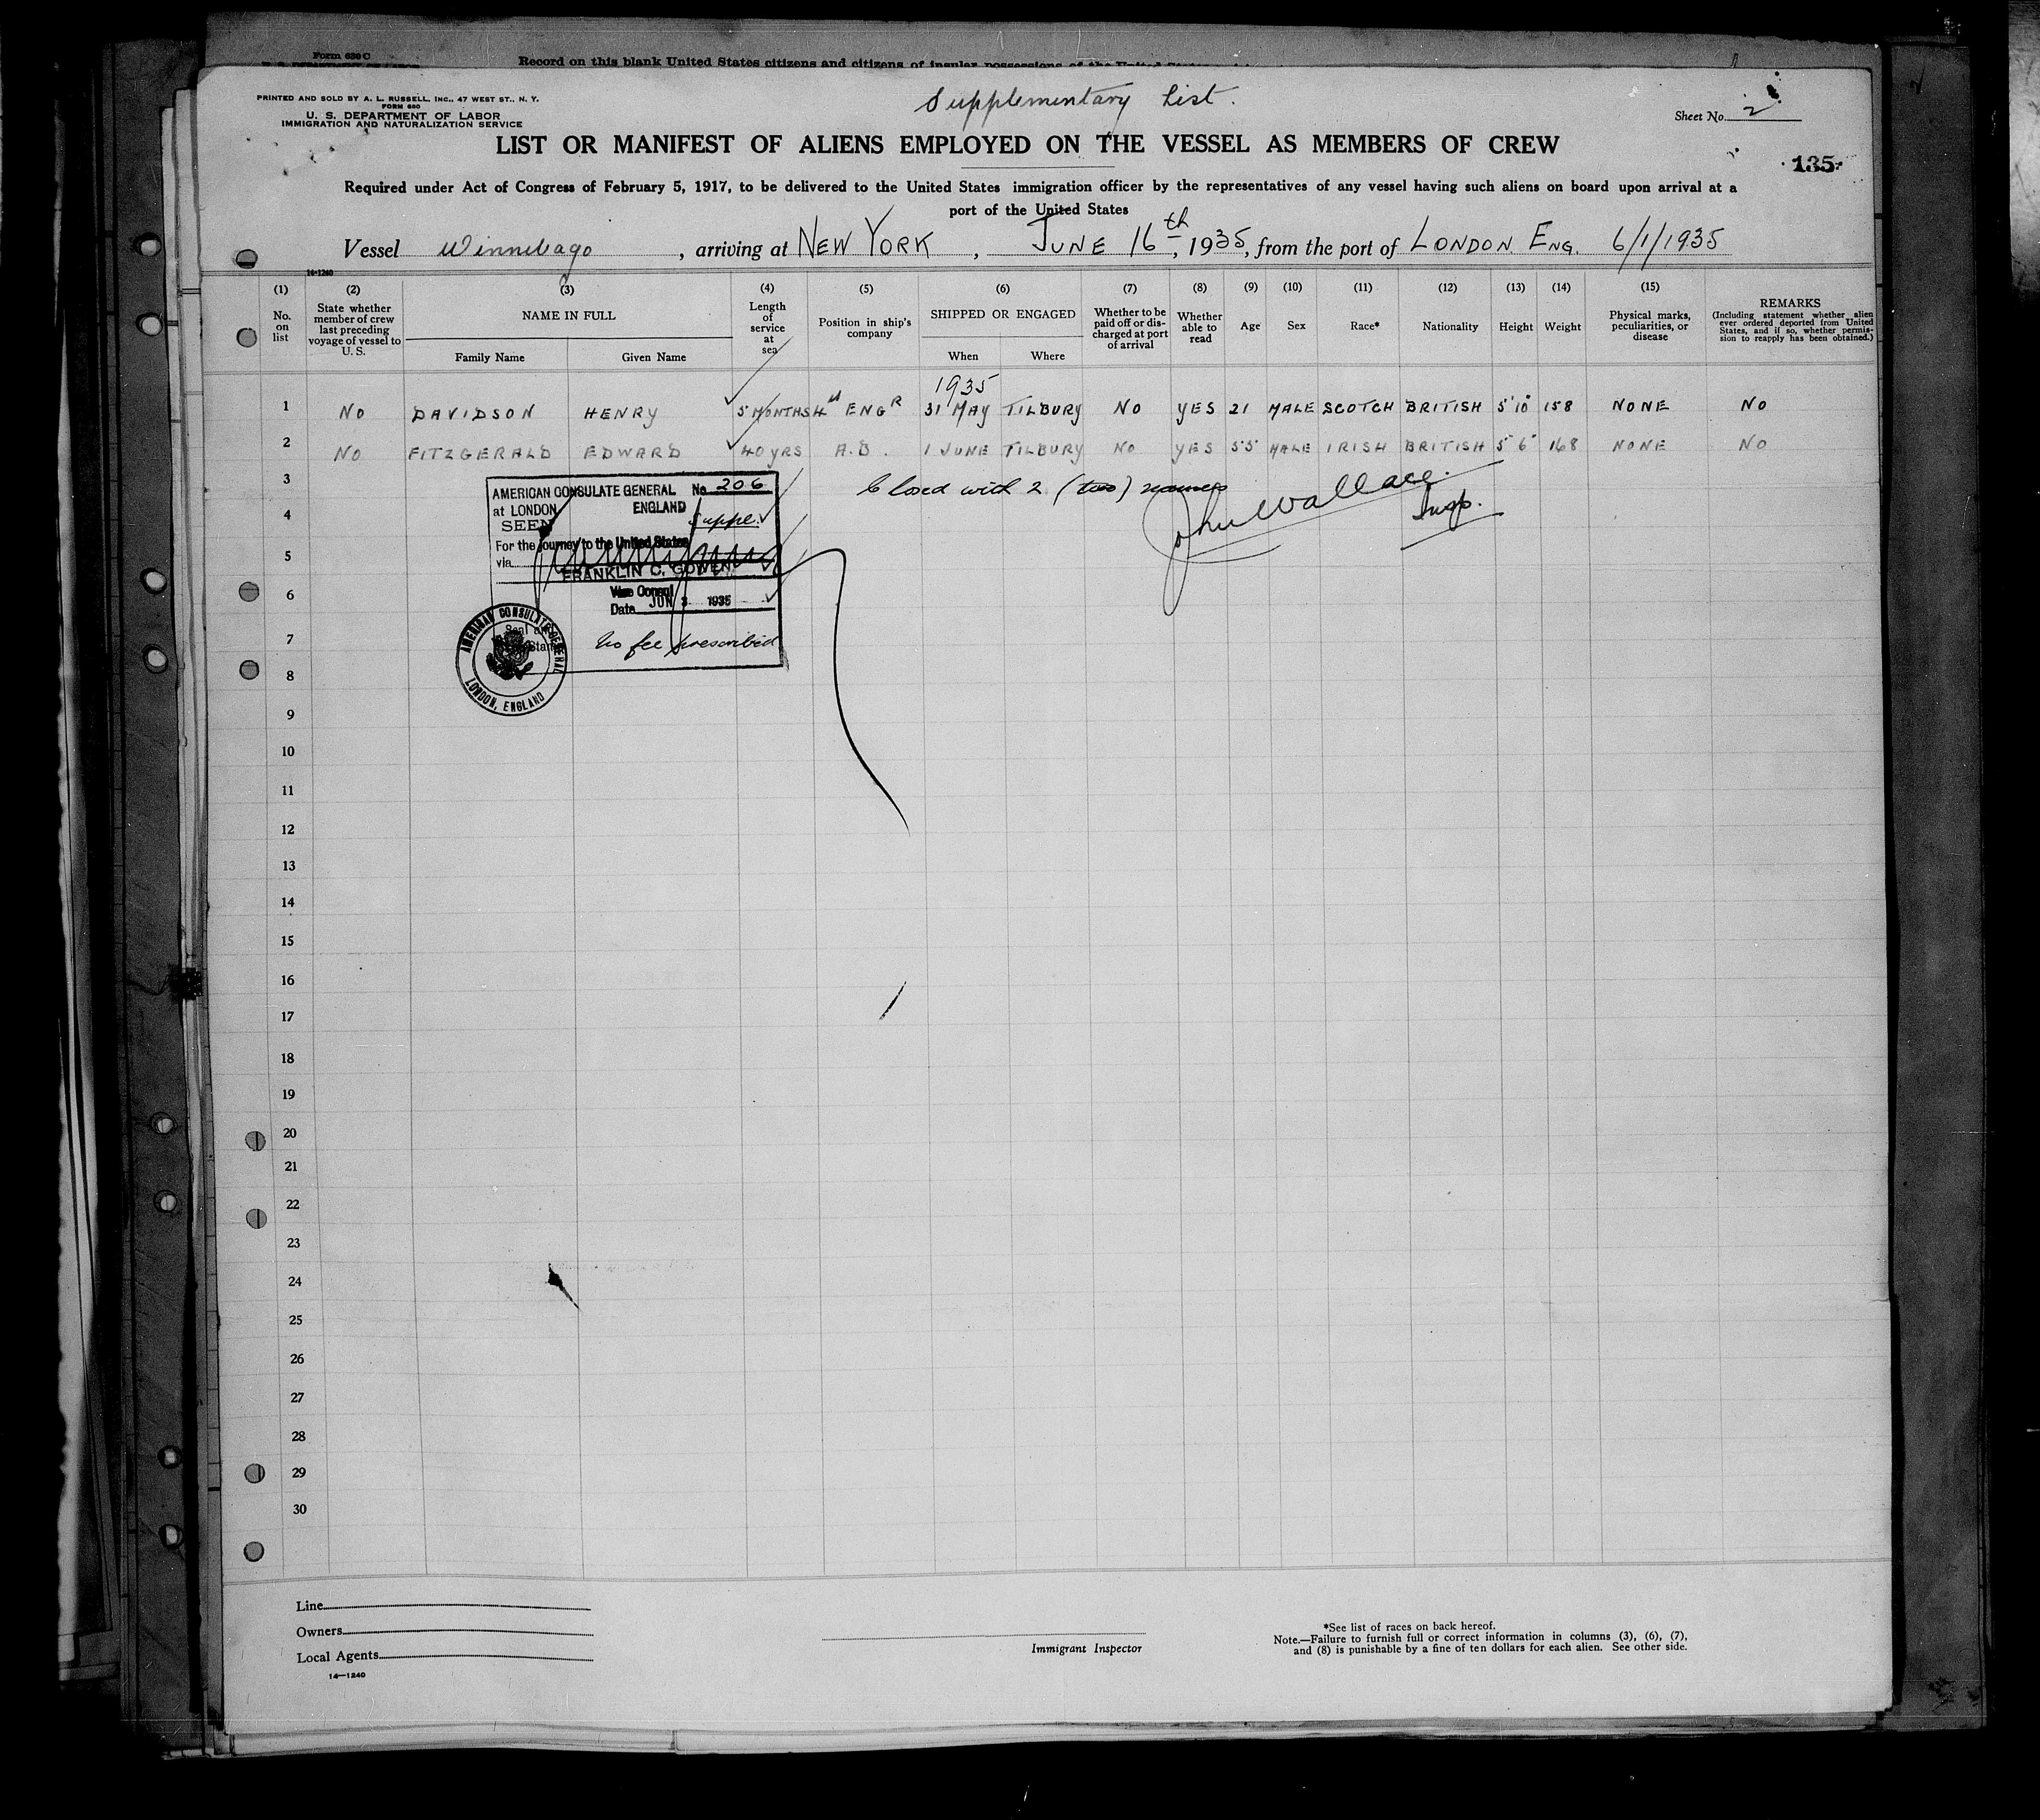 Form 630 C
Record on this blank United States citizens and citizens of insular possessions of the United States
PRINTED AND SOLD BY A. L. RUSSELL, INC., 47 WEST ST., N. Y.
FORM 680
U. S. DEPARTMENT OF LABOR
IMMIGRATION AND NATURALIZATION SERVICE
Supplementary List.
Sheet No. 2
LIST OR MANIFEST OF ALIENS EMPLOYED ON THE VESSEL AS MEMBERS OF CREW
135
Required under Act of Congress of February 5, 1917, to be delivered to the United States immigration officer by the representatives of any vessel having such aliens on board upon arrival at a
port of the United States
Vessel Winnebago, arriving at NEW YORK, JUNE 16th, 1935, from the port of LONDON ENG. 6/1/1935
14-1240
(1) No. on list
(2) State whether member of crew last preceding voyage of vessel to U. S.
(3) NAME IN FULL
Family Name Given Name
(4) Length of service at sea
(5) Position in ship's company
(6) SHIPPED OR ENGAGED
When Where
(7) Whether to be paid off or discharged at port of arrival
(8) Whether able to read
(9) Age
(10) Sex
(11) Race*
(12) Nationality
(13) Height
(14) Weight
(15) Physical marks, peculiarities, or disease
REMARKS
(Including statement whether alien ever ordered deported from United States, and if so, whether permission to reapply has been obtained.)
1935
1 NO DAVIDSON HENRY 5 MONTHS 4th ENGR 31 MAY TILBURY NO YES 21 MALE SCOTCH BRITISH 5'10" 158 NONE NO
2 NO FITZGERALD EDWARD 40 YRS A.B. 1 JUNE TILBURY NO YES 55 MALE IRISH BRITISH 5'6" 168 NONE NO
3
Closed with 2 (two) names
John Wallace
Insp.
AMERICAN CONSULATE GENERAL No. 206
at LONDON ENGLAND
SEEN Supple.
For the journey to the United States
via
FRANKLIN C. GOWEN
Vice Consul
Date JUN 3 1935
No fee prescribed
AMERICAN CONSULATE GENERAL
LONDON, ENGLAND
4
5
6
7
8
9
10
11
12
13
14
15
16
17
18
19
20
21
22
23
24
25
26
27
28
29
30
Line
Owners
Local Agents
14—1240
Immigrant Inspector
*See list of races on back hereof.
Note.—Failure to furnish full or correct information in columns (3), (6), (7),
and (8) is punishable by a fine of ten dollars for each alien. See other side.